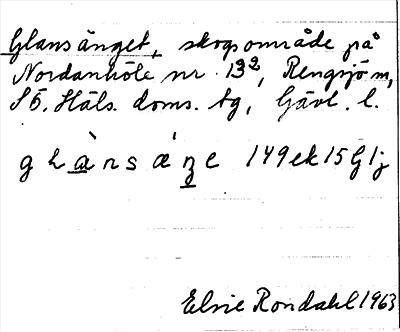 Glansänget, skogsområde på
Nordanhöle nr 13², Rengsjö sn,
SÖ. Häls. doms. tg, Gävl. l.
149ek15Glj
Elsie Rondahl 1963